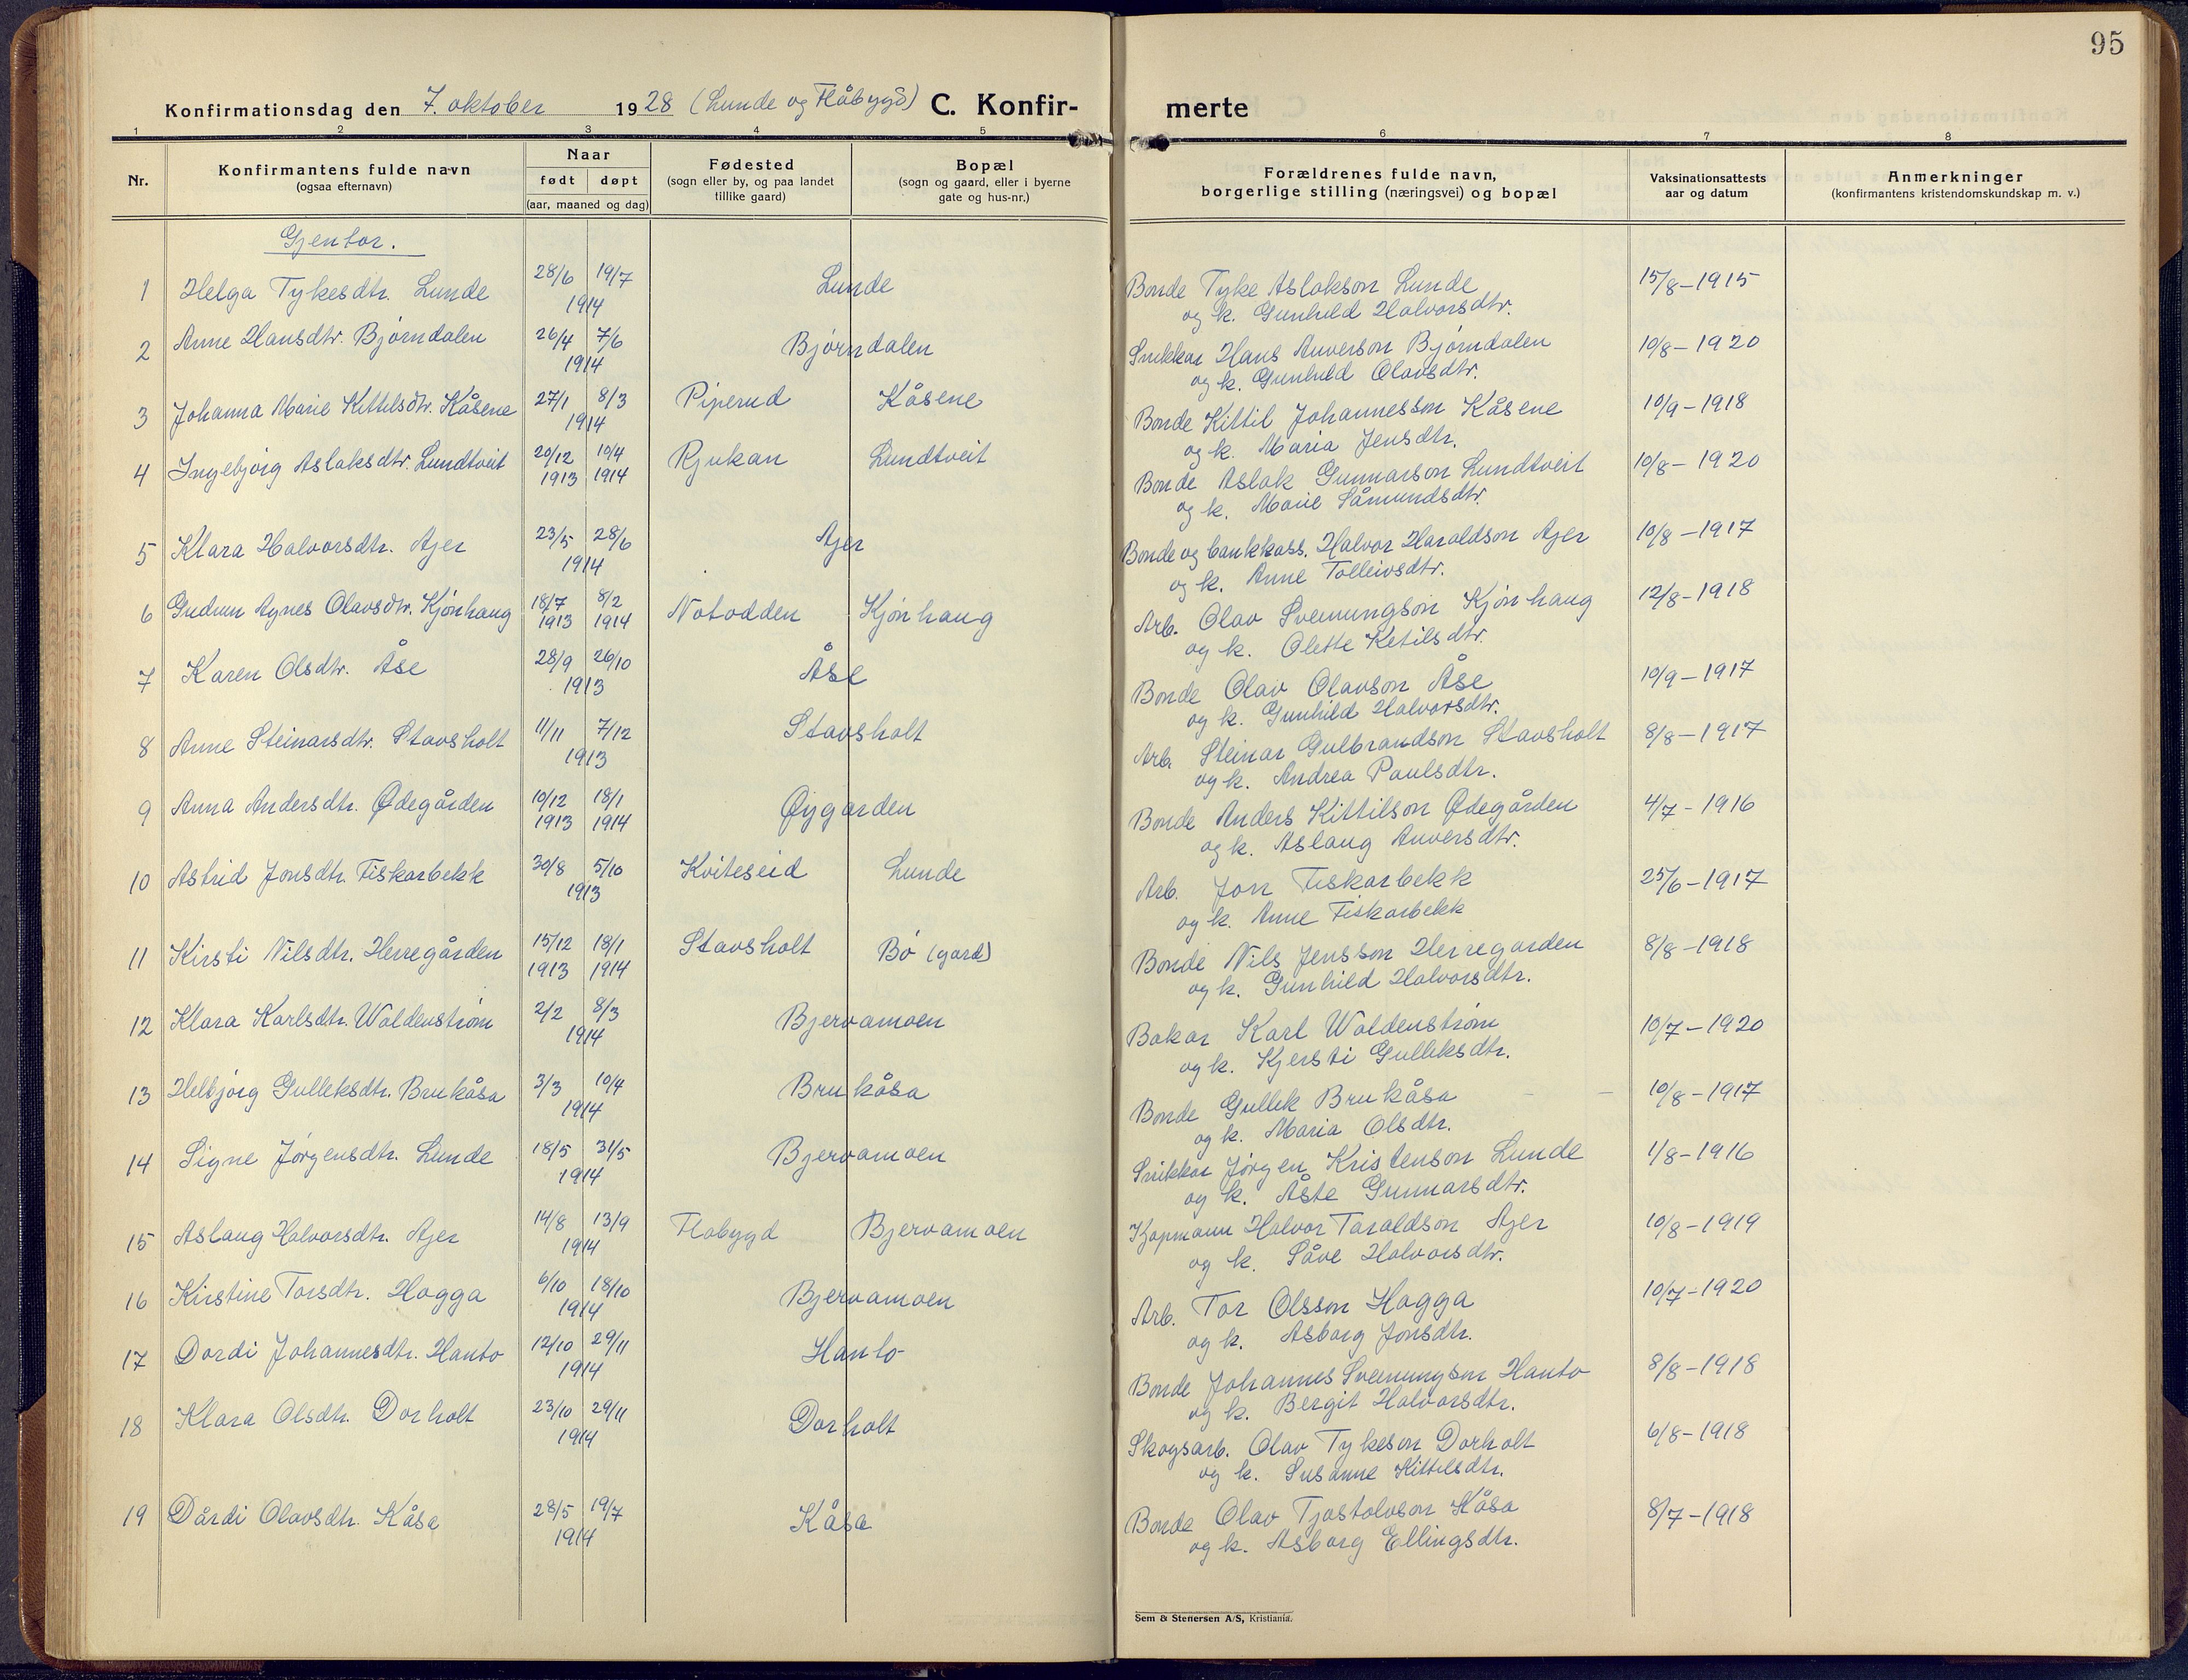 95
Konfirmationsdag den 7. oktober 1928 (Lunde og Flåbygd) C. Konfir- merte
1 2 3 4 5 6 7 8
Nr. Konfirmantens fulde navn (ogsaa efternavn) Naar født døpt (aar, maaned og dag) Fødested (sogn eller by, og paa landet tillike gaard) Bopæl (sogn og gaard, eller i byerne gate og hus-nr.) Forældrenes fulde navn, borgerlige stilling (næringsvei) og bopæl Vaksinationsattests aar og datum Anmerkninger (konfirmantens kristendomskundskap m. v.)
Gjentor.
1 Helga Tykesdtr. Lunde 28/6 19/7 1914 Lunde Bonde Tyke Aslakson Lunde 15/8-1915
og k. Gunhild Halvorsdtr.
2 Anne Hansdtr. Bjørndalen 26/4 7/6 1914 Bjørndalen Snikkar Hans Anverson Bjørndalen 10/8-1920
og k. Gunhild Olavsdtr.
3 Johanna Marie Kittilsdtr. Kåsene 27/1 8/3 1914 Piperud Kåsene Bonde Kittil Johannesson Kåsene 10/9-1918
og k. Maria Jensdtr.
4 Ingebjørg Aslaksdtr. Lundtveit 20/12 1913 10/4 1914 Rjukan Lundtveit Bonde Aslak Gunnarson Lundtveit 10/8-1920
og k. Marie Såmundsdtr.
5 Klara Halvorsdtr. Ajer 23/5 28/6 1914 Ajer Bonde og bankkass. Halvor Haraldson Ajer 10/8-1917
og k. Anne Tolleivsdtr.
6 Gudrun Agnes Olavsdtr. Kjønhaug 18/7 1913 8/2 1914 Notodden Kjønhaug Arb. Olav Sveinungson Kjønhaug 12/8-1918
og k. Olette Ketilsdtr.
7 Karen Olsdtr. Åse 28/9 26/10 1913 Åse Bonde Olav Olavson Åse 10/9-1917
og k. Gunhild Halvorsdtr.
8 Anne Steinarsdtr. Stavsholt 11/11 7/12 1913 Stavsholt Arb. Steinar Gulbrandson Stavsholt 8/8-1917
og k. Andrea Paulsdtr.
9 Anna Andersdtr. Ødegården 10/12 1913 18/1 1914 Øygarden Bonde Anders Kittilson Ødegården 4/7-1916
og k. Aslaug Anversdtr.
10 Astrid Jonsdtr. Fiskarbekk 30/8 5/10 1913 Kviteseid Lunde Arb. Jon Fiskarbekk 25/6-1917
og k. Anne Fiskarbekk
11 Kirsti Nilsdtr. Herregården 15/12 1913 18/1 1914 Stavsholt Bø (gard) Bonde Nils Jensson Herregarden 8/8-1918
og k. Gunhild Halvorsdtr.
12 Klara Karlsdtr. Waldenstrøm 2/2 8/3 1914 Bjervamoen Bakar Karl Waldenstrøm 10/7-1920
og k. Kjersti Gulleksdtr.
13 Helbjørg Gulleksdtr. Brukåsa 3/3 10/4 1914 Brukåsa Bonde Gullek Brukåsa 10/8-1917
og k. Maria Olsdtr.
14 Signe Jørgensdtr. Lunde 18/5 31/5 1914 Bjervamoen Snikkar Jørgen Kristenson Lunde 1/8-1916
og k. Åste Gunnarsdtr.
15 Aslaug Halvorsdtr. Ajer 14/8 13/9 1914 Flabygd Bjervamoen Kjøpmann Halvor Taraldson Ajer 10/8-1919
og k. Såve Halvorsdtr.
16 Kirstine Torsdtr. Hogga 6/10 18/10 1914 Bjervamoen Arb. Tor Olsson Hogga 10/7-1920
og k. Asborg Jonsdtr.
17 Dordi Johannesdtr. Hanto 12/10 29/11 1914 Hanto Bonde Johannes Sveinungson Hanto 8/8-1918
og k. Bergit Halvorsdtr.
18 Klara Olsdtr. Dorholt 23/10 29/11 1914 Dorholt Skogsarb. Olav Tykeson Dorholt 6/8-1918
og k. Susanne Kittilsdtr.
19 Dårdi Olavsdtr. Kåsa 28/5 19/7 1914 Kåsa Bonde Olav Tjostolvson Kåsa 8/7-1918
og k. Asborg Ellingsdtr.
Sem & Stenersen A/S, Kristiania.